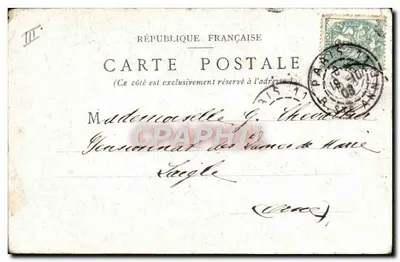 III
RÉPUBLIQUE FRANÇAISE
CARTE POSTALE
(Ce côté est exclusivement réservé à l'adresse
PARIS 11
RIS 11
CPAPHIL
Mademoiselle G. Chevallier
Pensionnat des Dames de Marie
Laigle
Orne